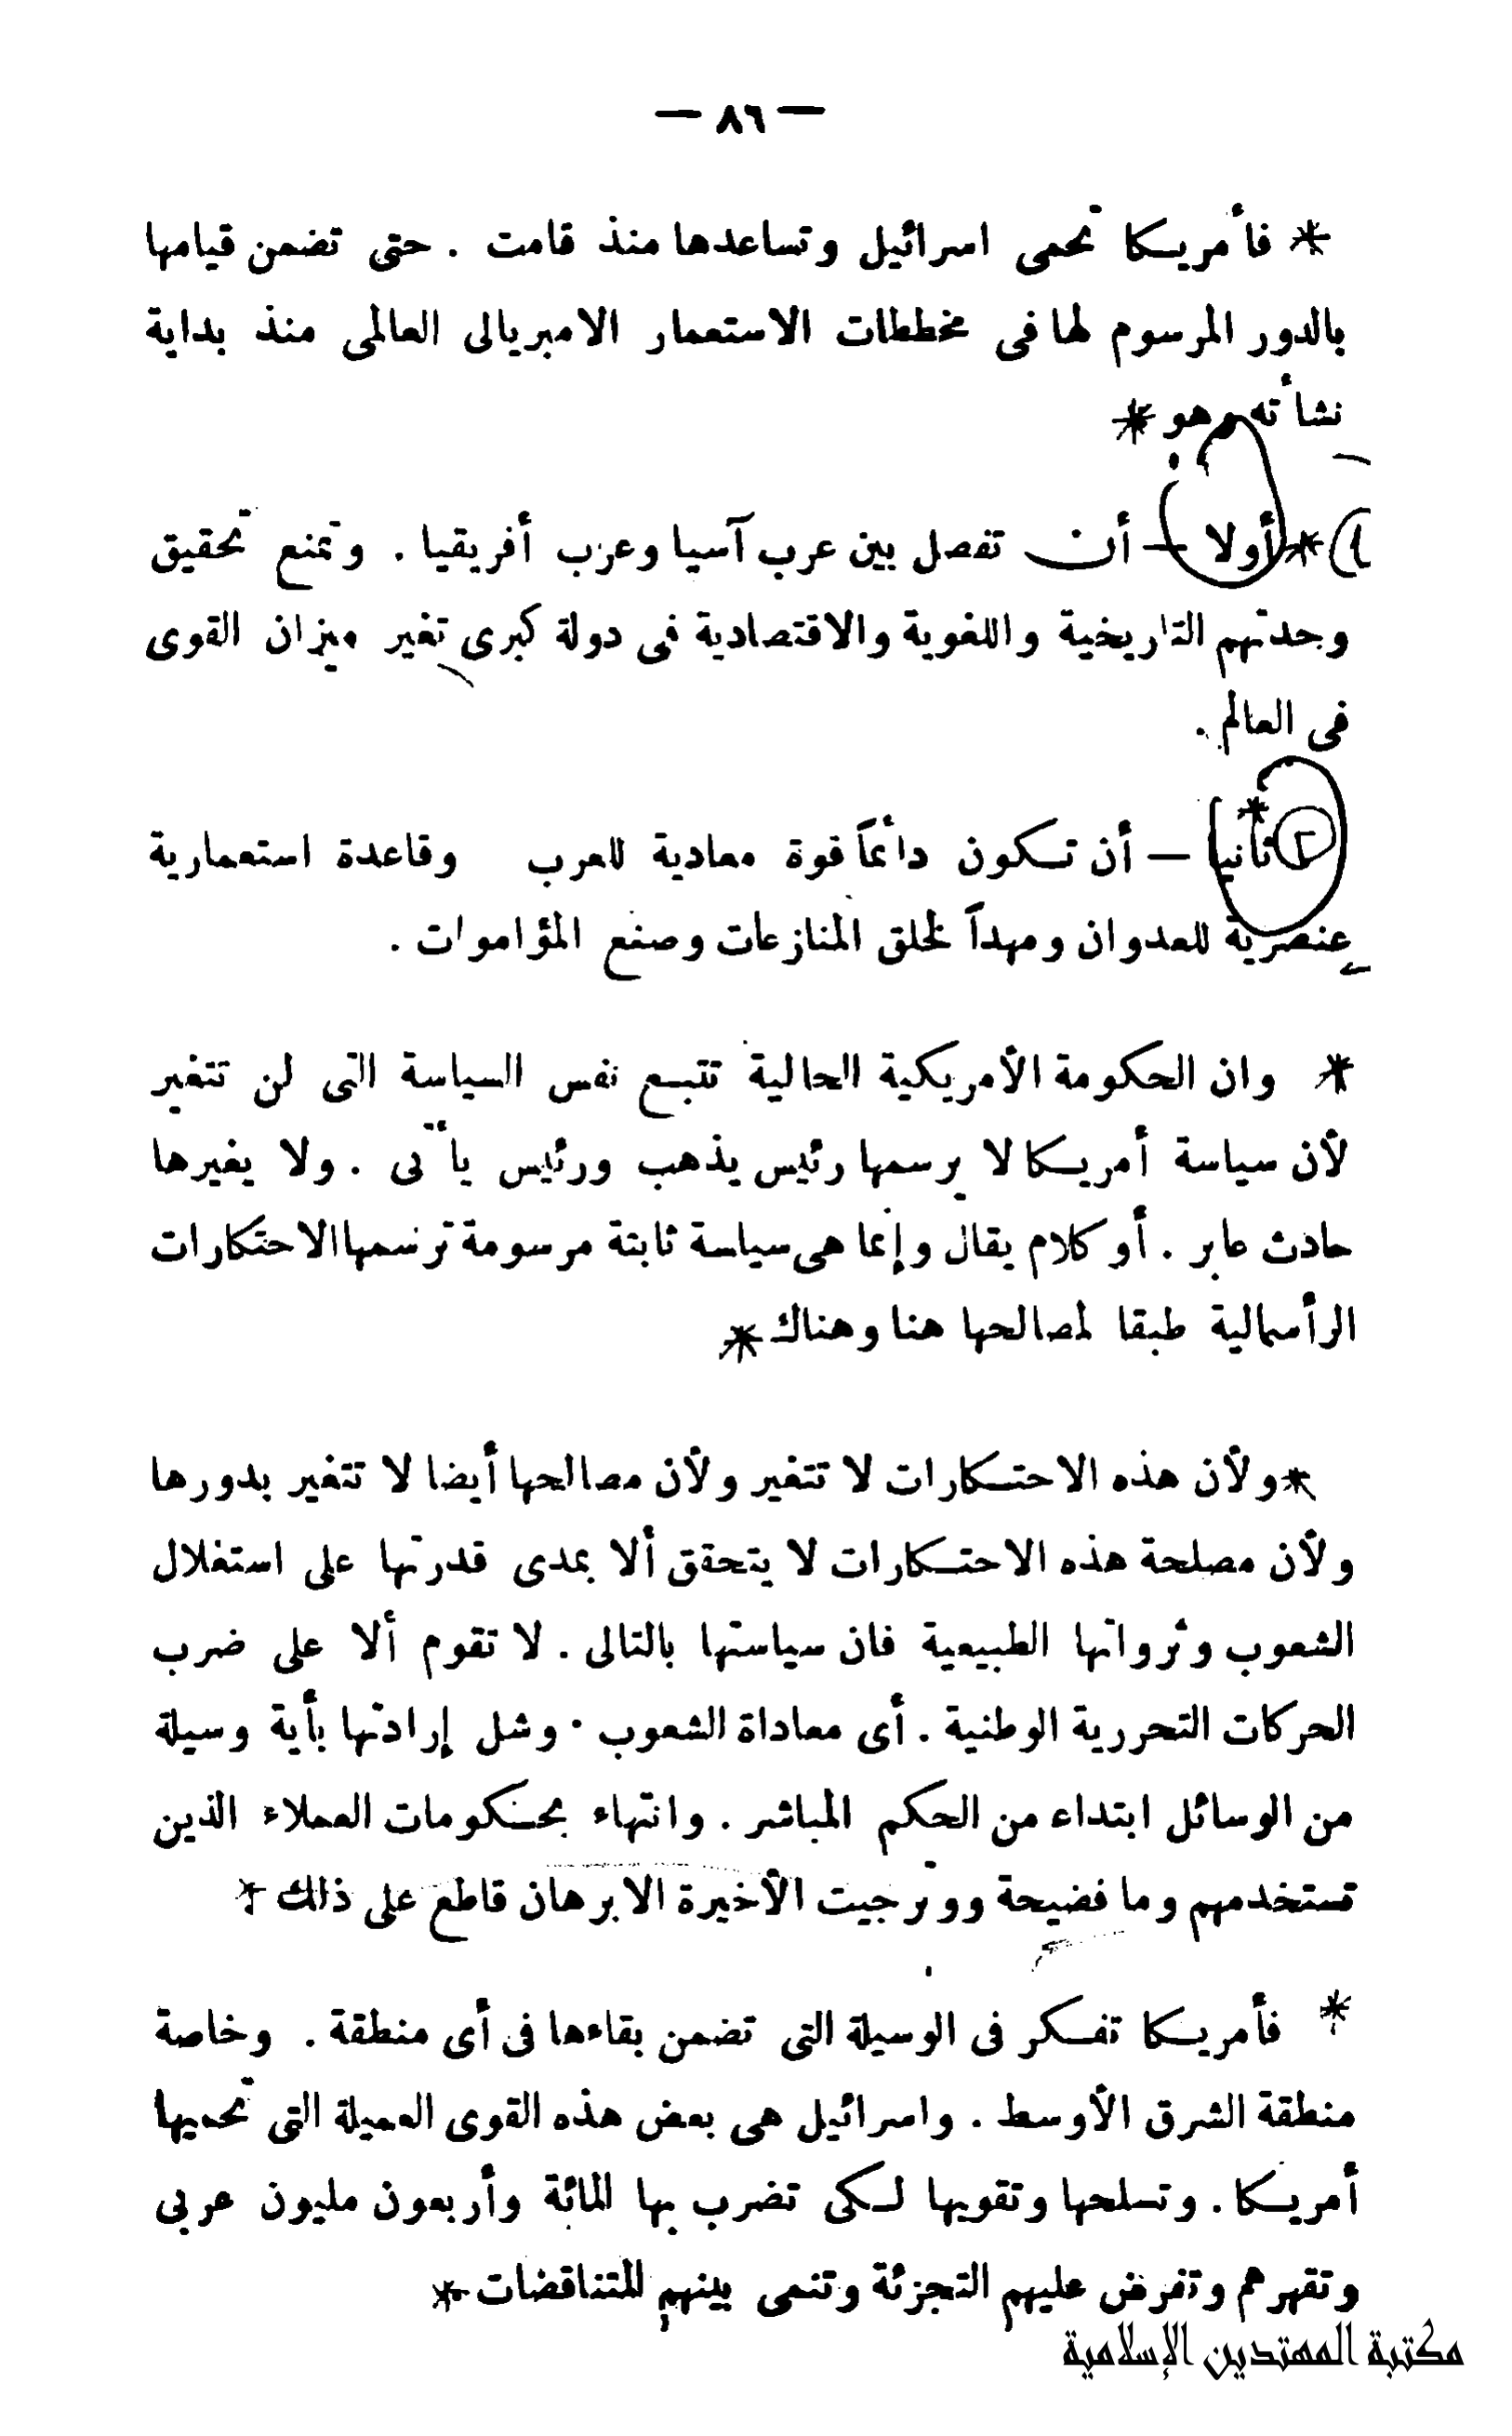 — ٨٦ —
* فأمريكا تحمى اسرائيل وتساعدها منذ قامت . حتى تضمن قيامها
بالدور المرسوم لها فى مخططات الاستعمار الامبريالى العالمى منذ بداية
نشأته وهو *
١) * أولا — أن تفصل بين عرب آسيا وعرب أفريقيا . وتمنع تحقيق
وحدتهم التاريخية واللغوية والاقتصادية فى دولة كبرى تغير ميزان القوى
فى العالم .
٢ * ثانيا — أن تكون دائماً قوة معادية للعرب وقاعدة استعمارية
عنصرية للعدوان ومهداً لخلق المنازعات وصنع المؤاموات .
* وان الحكومة الأمريكية الحالية تتبع نفس السياسة التى لن تتغير
لأن سياسة أمريكا لا يرسمها رئيس يذهب ورئيس يأتى . ولا يغيرها
حادث عابر . أو كلام يقال وإنما هى سياسة ثابتة مرسومة ترسمها الاحتكارات
الرأسمالية طبقا لمصالحها هنا وهناك *
* ولأن هذه الاحتكارات لا تتغير ولأن مصالحها أيضا لا تتغير بدورها
ولأن مصلحة هذه الاحتكارات لا يتحقق ألا بمدى قدرتها على استغلال
الشعوب وثرواتها الطبيعية فان سياستها بالتالى . لا تقوم ألا على ضرب
الحركات التحررية الوطنية . أى معاداة الشعوب . وشل إرادتها بأية وسيلة
من الوسائل ابتداء من الحكم المباشر . وانتهاء بحكومات العملاء الذين
تستخدمهم وما فضيحة ووترجيت الأخيرة الا برهان قاطع على ذلك *
* فأمريكا تفكر فى الوسيلة التى تضمن بقاءها فى أى منطقة . وخاصة
منطقة الشرق الأوسط . واسرائيل هى بعض هذه القوى العميلة التى تحميها
أمريكا . وتسلحها وتقويها لكى تضرب بها المائة وأربعون مليون عربى
وتقهرهم وتفرض عليهم التجزئة وتنمى بينهم للمتناقضات *
مكتبة المهتدين الإسلامية